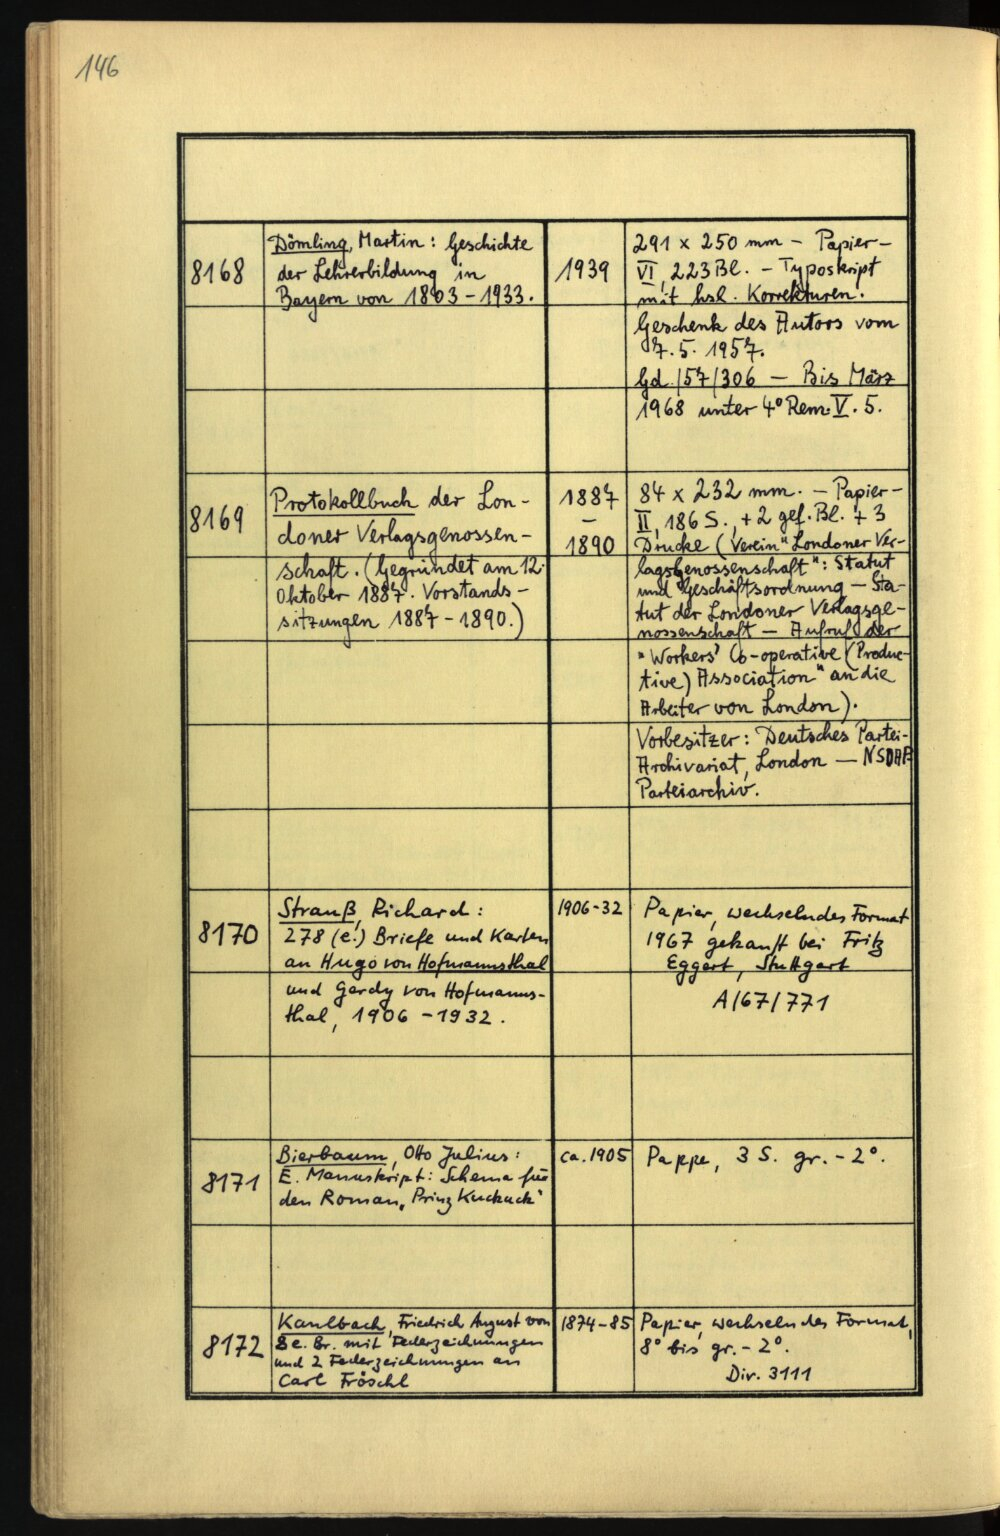 146
8168
Dömling, Martin: Geschichte
der Lehrerbildung in
Bayern von 1803-1933.
1939
291 x 250 mm – Papier –
VI, 223 Bl. – Typoskript
mit hsl. Korrekturen.
Geschenk des Autors vom
7.5.1957.
Gd./57/306 – Bis März
1968 unter 4° Rem V. 5.
8169
Protokollbuch der Lon-
doner Verlagsgenossen-
schaft. (Gegründet am 12.
Oktober 1887. Vorstands-
sitzungen 1887-1890.)
1887
–
1890
84 x 232 mm. – Papier –
II, 186 S., + 2 gef. Bl. + 3
Drucke (Verein "Londoner Ver-
lagsgenossenschaft": Statut
und Geschäftsordnung – Sta-
tut der Londoner Verlagsge-
nossenschaft – Aufruf der
"Workers' Co-operative (Produc-
tive) Association" an die
Arbeiter von London).
Vorbesitzer: Deutsches Partei-
Archivariat, London – NSDAP
Parteiarchiv.
8170
Strauß, Richard:
278 (e.) Briefe und Karten
an Hugo von Hofmannsthal
und Gerdy von Hofmanns-
thal, 1906-1932.
1906-32
Papier, wechselndes Format
1967 gekauft bei Fritz
Eggert, Stuttgart
A/67/771
8171
Bierbaum, Otto Julius:
E. Manuskript: Schema für
den Roman „Prinz Kuckuck"
ca. 1905
Pappe, 3 S. gr.-2°.
8172
Kaulbach, Friedrich August von
8 e. Br. mit Federzeichnungen
und 2 Federzeichnungen an
Carl Fröschl
1874-85
Papier, wechselndes Format,
8° bis gr.-2°.
Div. 3111